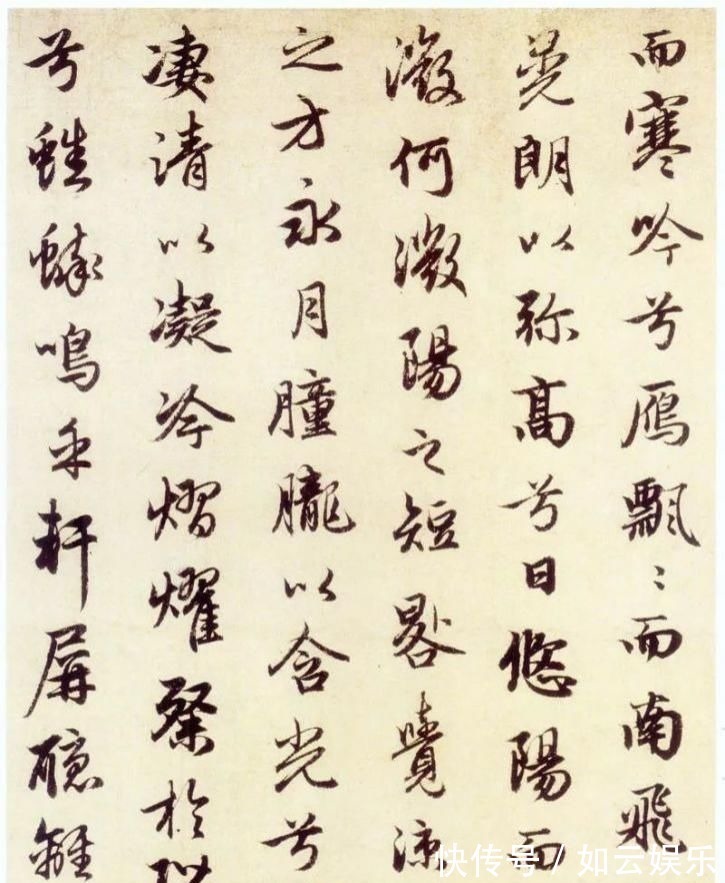 而寒吟兮鴈飄〻而南飛
晃朗以弥高兮日悠陽而
微何微陽之短晷覺涼
之方永月朣朧以含光兮
凄清以凝冷熠燿粲於
兮蟋蟀鳴乎軒屏聽離
快传号 / 如云娱乐